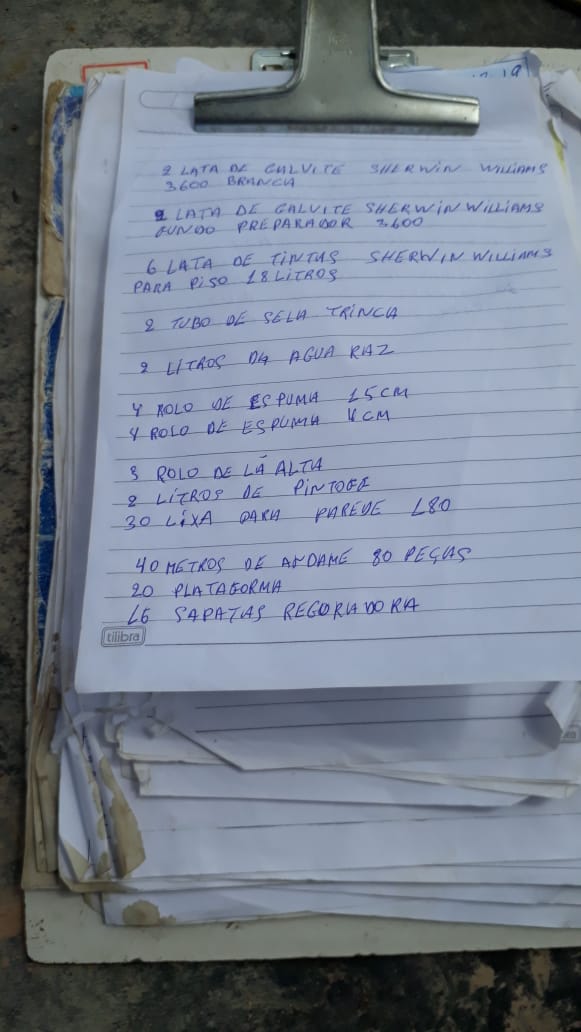 2 LATA DE GALVITE SHERWIN WILLIAMS
3.600 BRANCA
2 LATA DE GALVITE SHERWIN WILLIAMS
FUNDO PREPARADOR 3600
6 LATA DE TINTAS SHERWIN WILLIAMS
PARA PISO 18 LITROS
2 TUBO DE SELA TRINCA
2 LITROS DA AGUA RAZ
4 ROLO DE ESPUMA 15CM
4 ROLO DE ESPUMA 4CM
3 ROLO DE LÃ ALTA
2 LITROS DE PINTOFF
30 LIXA PARA PAREDE 180
40 METROS DE ANDAME 80 PEÇAS
20 PLATAFORMA
16 SAPATAS REGORIADORA
tilibra